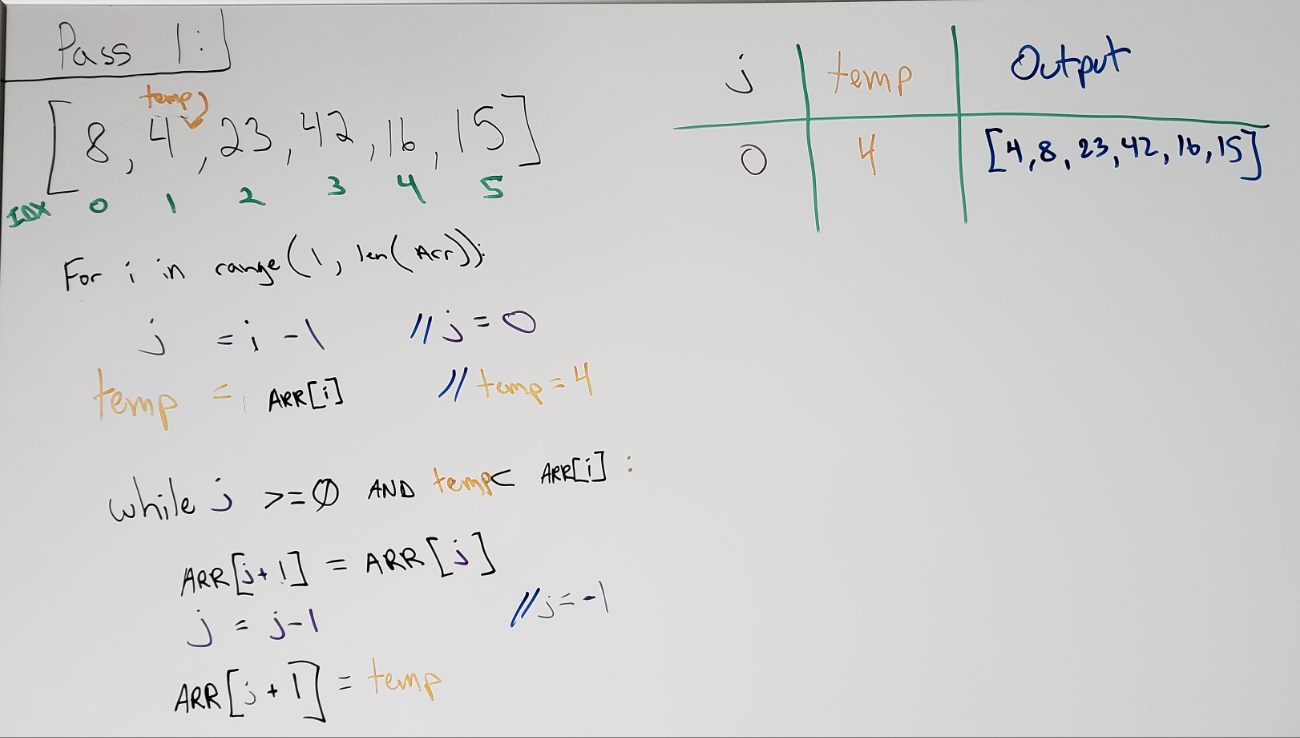 Pass 1:
temp
[8, 4, 23, 42, 16, 15]
IDX 0 1 2 3 4 5
For i in range(1, len(Arr)):
j = i - 1 // j = 0
temp = ARR[i] // temp = 4
while j >= 0 AND temp < ARR[i] :
ARR[j+1] = ARR[j]
j = j-1 // j = -1
ARR[j+1] = temp
j temp Output
0 4 [4,8,23,42,16,15]